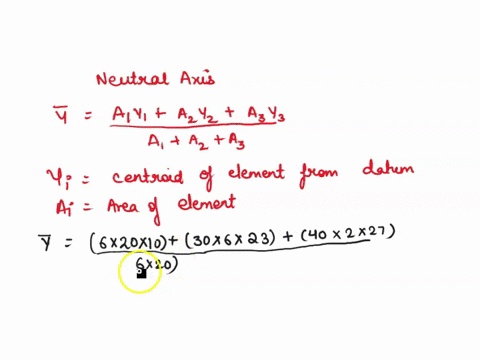 Neutral Axis
Ȳ = A₁Y₁ + A₂Y₂ + A₃Y₃
A₁ + A₂ + A₃
Yᵢ = centroid of element from datum
Aᵢ = Area of element
Ȳ = (6×20×10) + (30×6×23) + (40×2×27)
6×20)